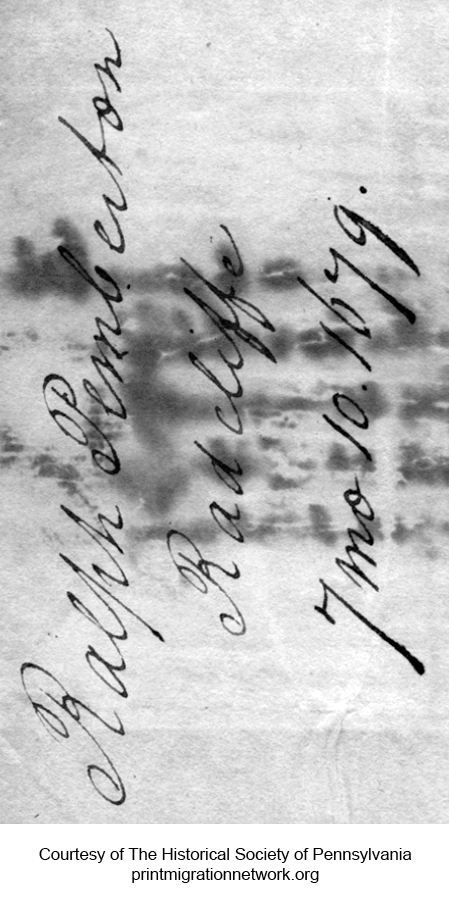 Ralph Pemberton
Radcliffe
7 mo 10. 1679.
Courtesy of The Historical Society of Pennsylvania
printmigrationnetwork.org